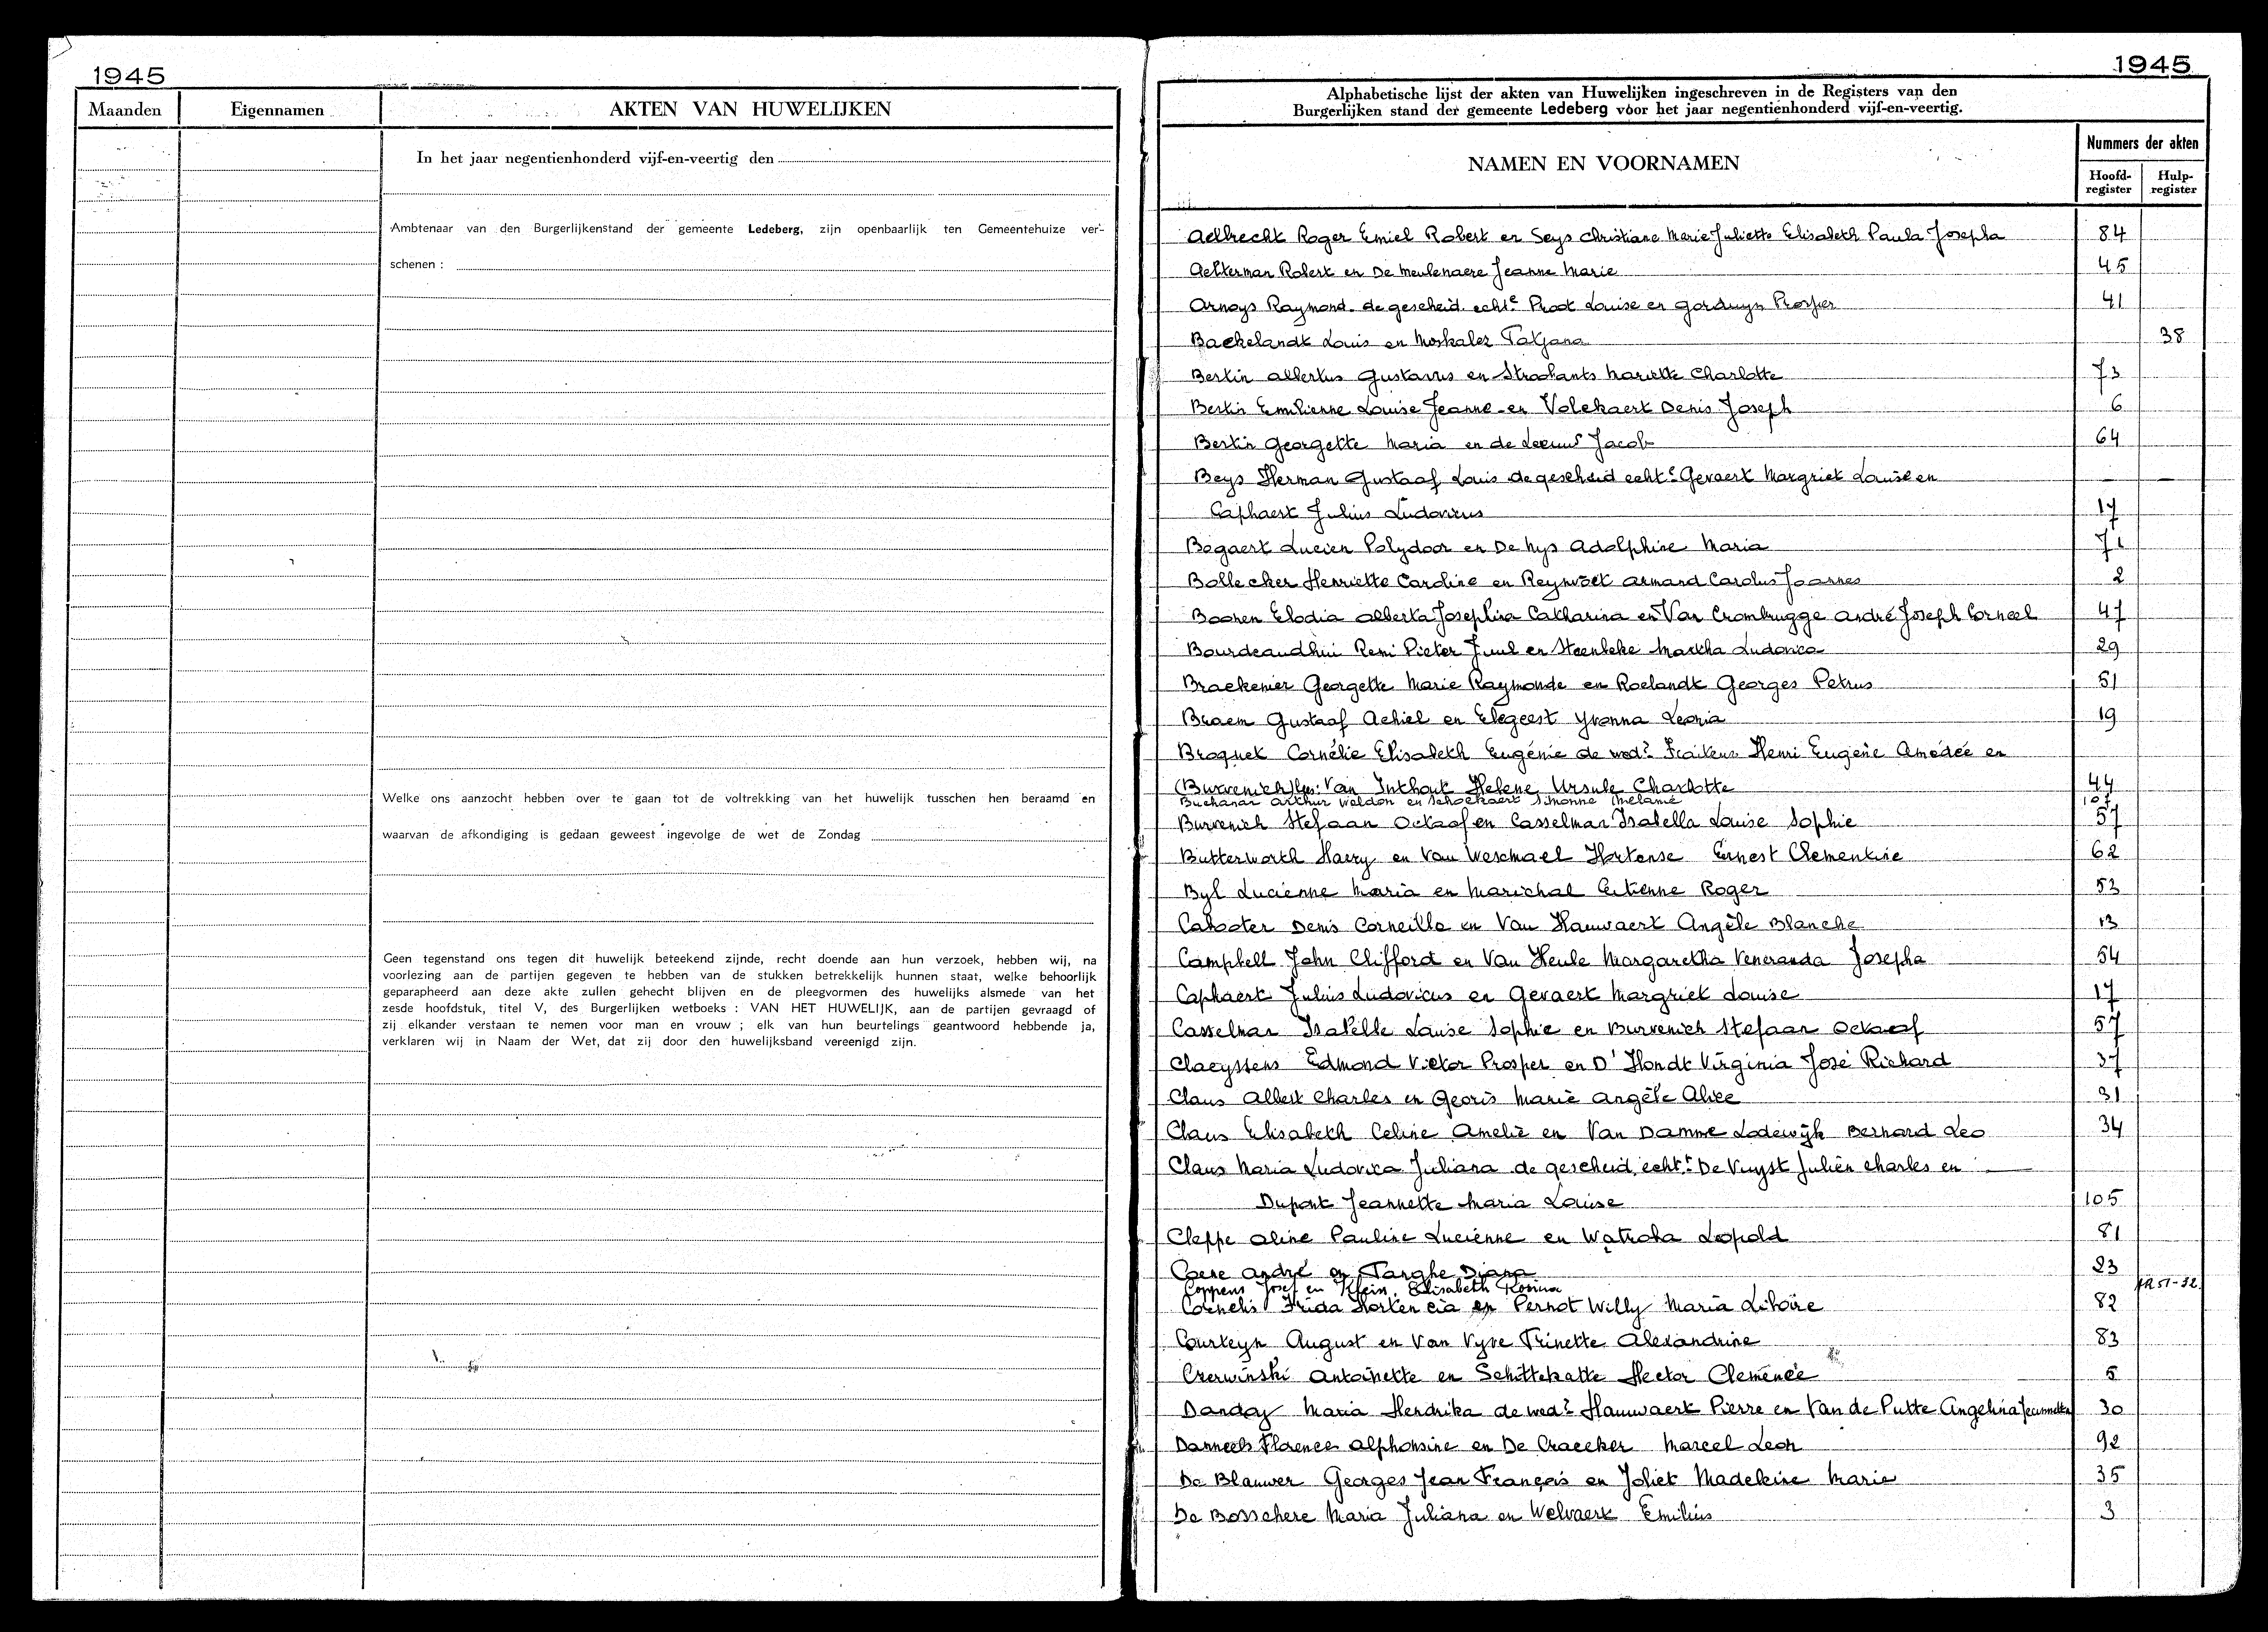 1945
Maanden
Eigennamen
AKTEN VAN HUWELIJKEN
In het jaar negentienhonderd vijf-en-veertig den
Ambtenaar van den Burgerlijkenstand der gemeente Ledeberg, zijn openbaarlijk ten Gemeentehuize ver-
schenen :
Welke ons aanzocht hebben over te gaan tot de voltrekking van het huwelijk tusschen hen beraamd en
waarvan de afkondiging is gedaan geweest ingevolge de wet de Zondag
Geen tegenstand ons tegen dit huwelijk beteekend zijnde, recht doende aan hun verzoek, hebben wij, na
voorlezing aan de partijen gegeven te hebben van de stukken betrekkelijk hunnen staat, welke behoorlijk
geparapheerd aan deze akte zullen gehecht blijven en de pleegvormen des huwelijks alsmede van het
zesde hoofdstuk, titel V, des Burgerlijken wetboeks : VAN HET HUWELIJK, aan de partijen gevraagd of
zij elkander verstaan te nemen voor man en vrouw ; elk van hun beurtelings geantwoord hebbende ja,
verklaren wij in Naam der Wet, dat zij door den huwelijksband vereenigd zijn.
1945
Alphabetische lijst der akten van Huwelijken ingeschreven in de Registers van den
Burgerlijken stand der gemeente Ledeberg vóor het jaar negentienhonderd vijf-en-veertig.
NAMEN EN VOORNAMEN
Nummers der akten
Hoofd-register
Hulp-register
Aelbrecht Roger Emiel Robert en Seys Christiane Marie Juliette Elisabeth Paula Josepha 84
Aelterman Robert en De Meulenaere Jeanne Marie 45
Arnoys Raymond de gescheid. echte Proot Louise en Gorduyn Prosper 41
Backelandt Louis en Moskalez Tatjana 38
Bertin Albertus Gustavus en Strobants Mariette Charlotte 73
Bertin Emilienne Louise Jeanne en Volckaert Denis Joseph 6
Bertin Georgette Maria en de Leeuw Jacob 64
Beys Herman Gustaaf Louis de gescheid echte Gevaert Margriet Louise en
Caphaert Julius Ludovicus 17
Bogaert Lucien Polydoor en De Nys Adolphine Maria 71
Bollecker Henriette Caroline en Reynvoet Armand Carolus Joannes 2
Boonen Elodia Alberta Josephina Catharina en Van Crombrugge André Joseph Corneel 47
Bourdeaudhui Remi Pieter Juul en Steenbeke Martha Ludovica 29
Braekenier Georgette Marie Raymonde en Roelandt Georges Petrus 51
Braem Gustaaf Achiel en Elegeest Yvonna Leonia 19
Broquet Cornélie Elisabeth Eugénie de wede Henri Eugène Amédée en
Van Inthout Helene Ursule Charlotte 44
Buchanan Arthur Weldon en Schockaert Simonne Melanie 107
Burvenich Stefaan Octaaf en Casselman Isabella Louise Sophie 57
Butterworth Harry en Van Wesemael Hortense Ernest Clementine 62
Byl Lucienne Maria en Marichal Etienne Roger 53
Cabooter Denis Corneille en Van Hauwaert Angèle Blanche 13
Campbell John Clifford en Van Heule Margaretha Veneranda Josepha 54
Caphaert Julius Ludovicus en Gevaert Margriet Louise 17
Casselman Isabelle Louise Sophie en Burvenich Stefaan Octaaf 57
Claeyssens Edmond Victor Prosper en D'Hondt Virginia José Richard 37
Claus Albert Charles en Georis Marie Angèle Alice 31
Claus Elisabeth Celine Amelie en Van Damme Lodewijk Bernard Leo 34
Claus Maria Ludovica Juliana de gescheid. echte De Vuyst Julien Charles en
Dupont Jeannette Maria Louise 105
Cleppe Aline Pauline Lucienne en Watroba Leopold 81
Coene André en Tanghe Diana 23
Coppens Josef en Klein Elisabeth Rosina
Cornelis Frida Hortencia en Pernot Willy Maria Liboire 82
Courteyn August en Van Vyve Trinette Alexandrine 83
Czerwinski Antoinette en Schittekatte Hector Clemence 5
Danday Maria Hendrika de wede Hauwaert Pierre en Van de Putte Angelina Jeannette 30
Danneels Florence Alphonsine en De Craecker Marcel Leon 92
De Blauwer Georges Jean François en Joliet Madeleine Marie 35
De Bosschere Maria Juliana en Welvaert Emilius 3